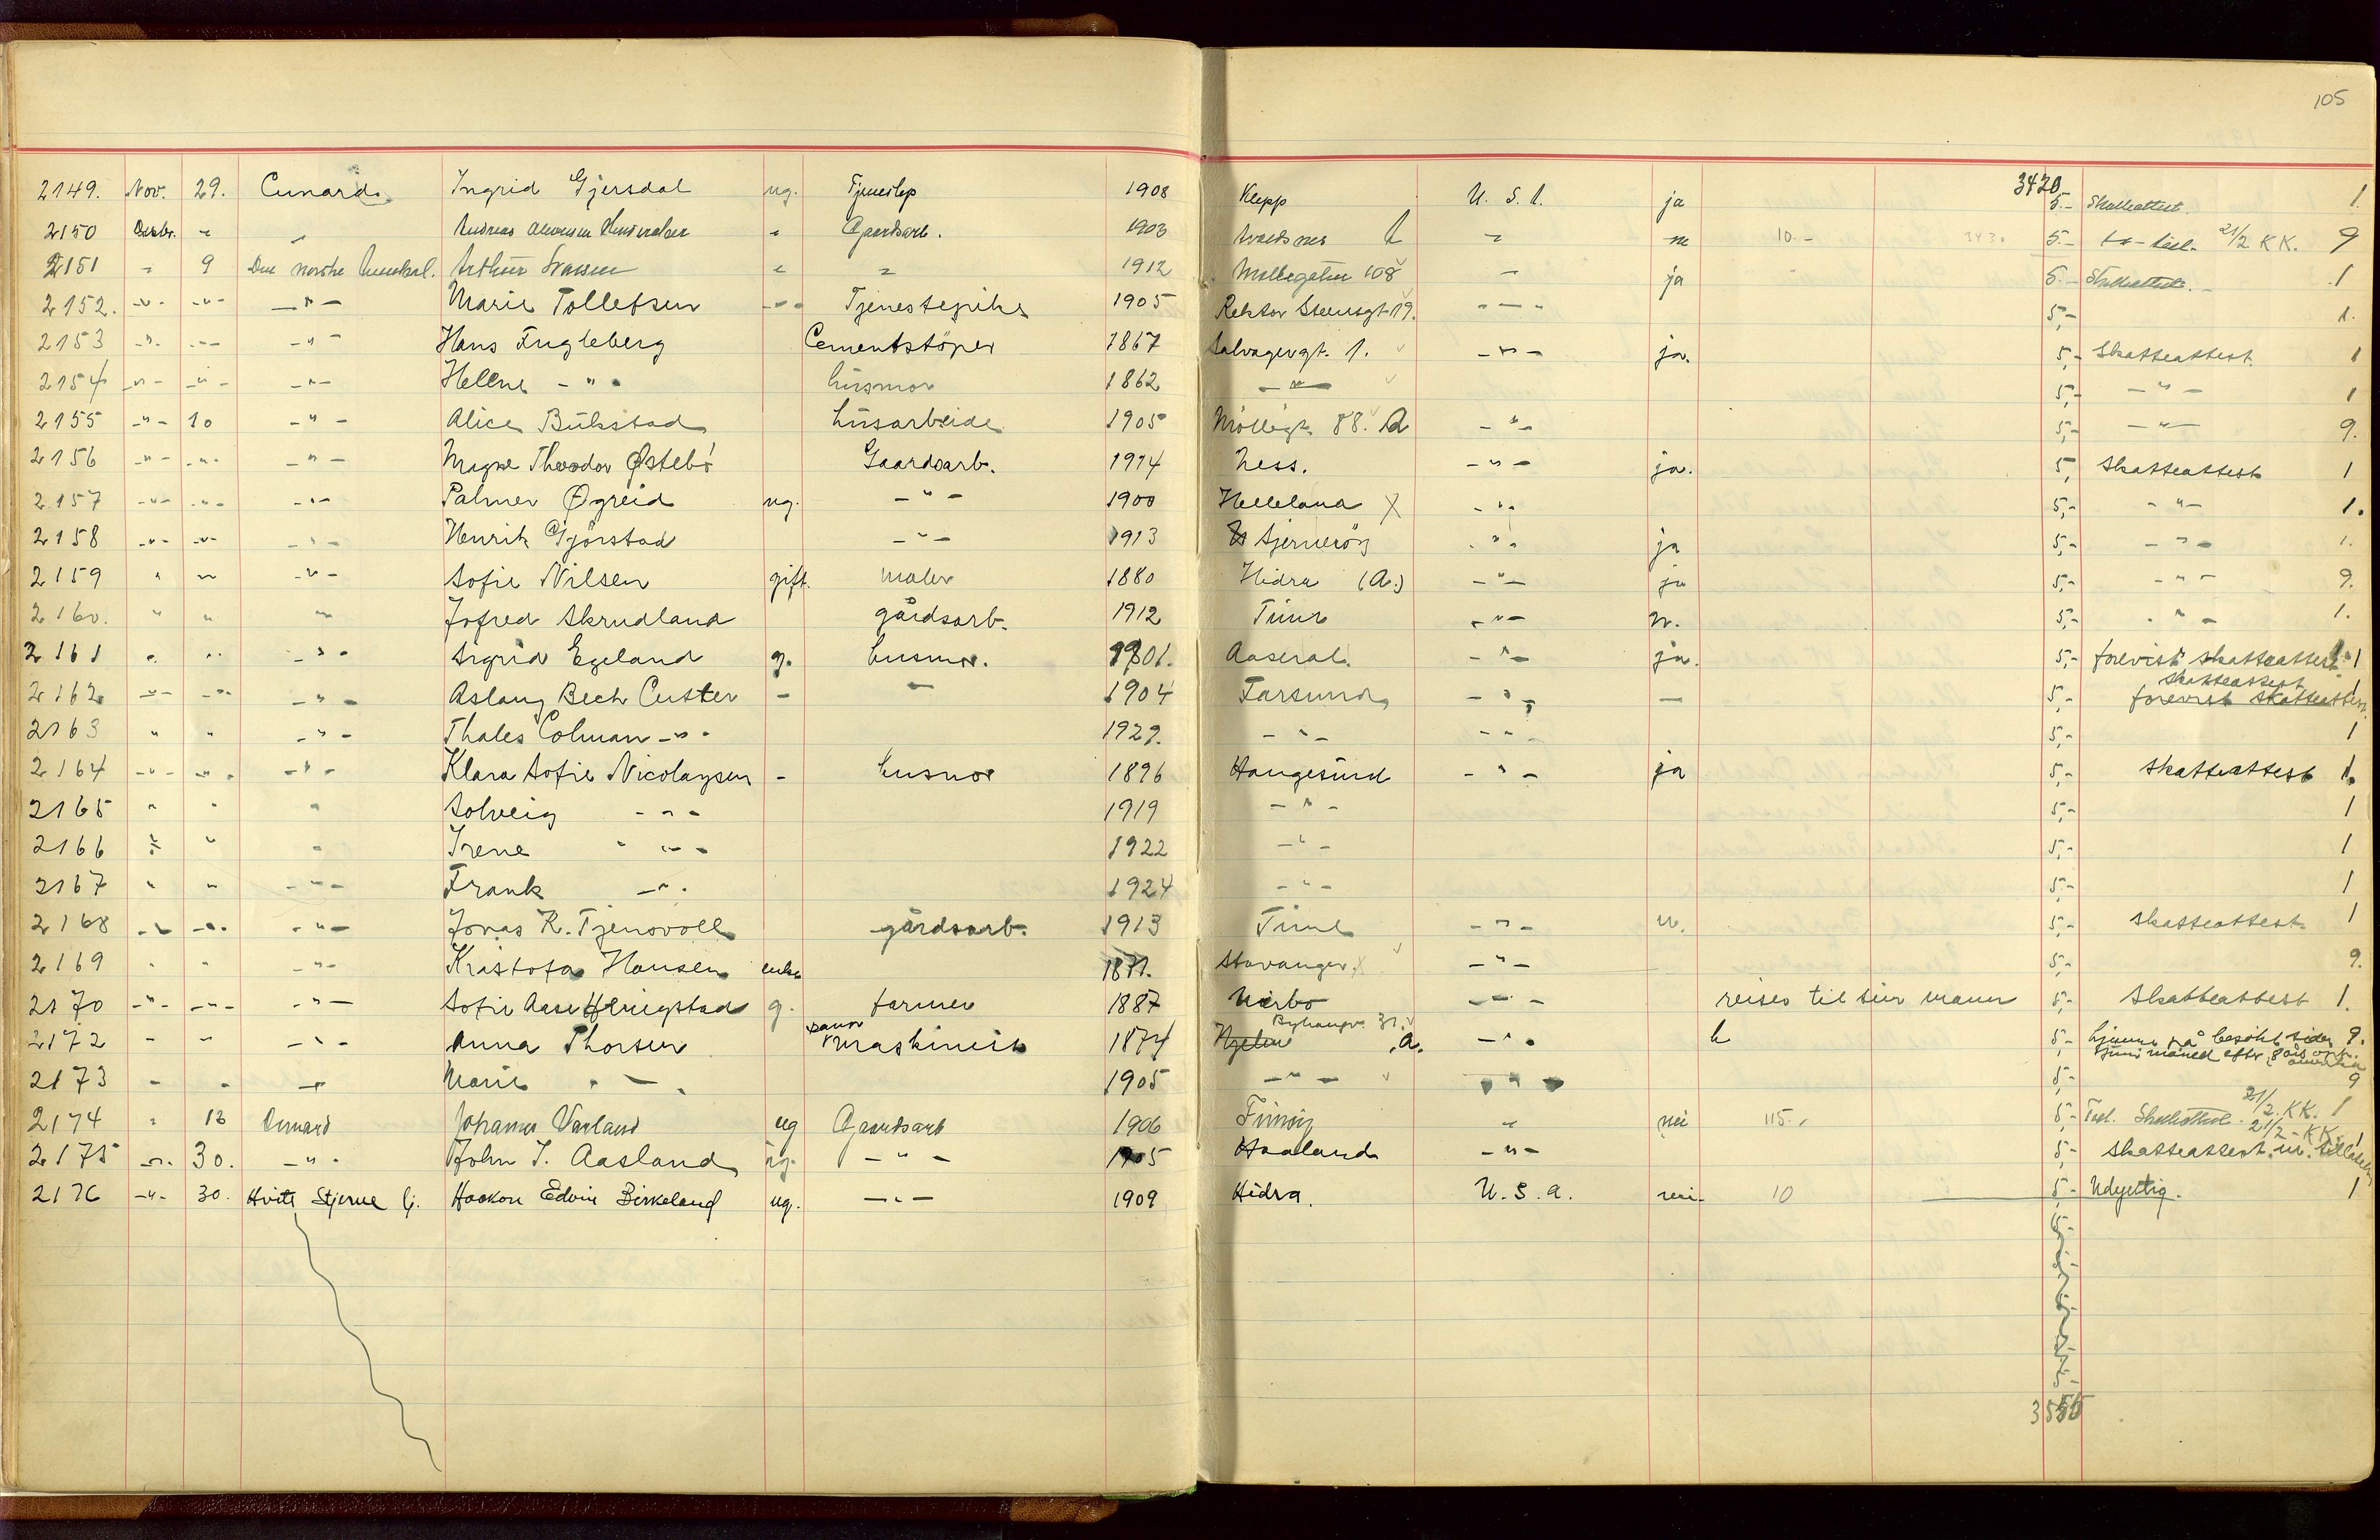 105
2149. Nov. 29. Cunard. Ingrid Gjersdal ug. 1908 Klepp U. S. A. ja 3420 5.- Skatteattest. 1.
2150 Desbr. " " Andreas " Gaardsarb. 1903 " ne 10.- 3430 5.- 21/2 KK. 9
2151 " 9 Den norske Amerikal. Arthur " " 1912 Møllegaten 108 - ja 5.- Skatteattest. 1
2152. -"- -"- -"- Marie Tollefsen -"- Tjenestepike 1905 Rektor Steensgt 19. "-" 5,- 1.
2153 -"- -"- -"- Hans Engleberg Cementstöper 1867 1. -"- ja. 5,- Skatteattest. 1
2154 -"- -"- -"- Hellne -"- husmor 1862 -"- 5,- -"- 1
2155 -"- 10 -"- Alice Bükstad husarbeide 1905 Möllegt. 88. A -"- 5,- -"- 9.
2156 -"- -"- -"- Magne Theodor Østebö Gaardsarb. 1914 Ness. -"- ja. 5, Skatteattest 1
2157 -"- -"- -"- Palmer Øgreid ug. -"- 1900 Helleland X -"- 5,- -"- 1.
2158 -"- -"- -"- Henrik Gjörstad -"- 1913 Sjerneröy -"- ja 5,- -"- 1.
2159 " " -"- Sofie Nilsen gift. maler 1880 Hidra (A.) -"- ja 5,- -"- 9.
2160. " " " Jofred Skrudland gårdsarb. 1912 Time -"- n. 5,- -"- 1.
2161 " " -"- Sigrid Egeland g. husmor. 1901. Aaseral. -"- ja. 5,- forevist skatteattest 1
skatteattest
2162 -"- -"- -"- Aslaug Bech Custer - - 1904 Farsund -"- - 5,- forevist skatteattest 1
2163 " " -"- Thales Colman -"- 1929. -"- -"- 5,- 1
2164 -"- -"- -"- Klara Sofie Nicolaysen - husmor 1896 Haugesund -"- ja 5,- Skatteattest 1.
2165 " " " Solveig -"- 1919 -"- 5,- 1
2166 " " " Irene " -"- 1922 -"- 5,- 1
2167 " " -"- Frank -"- 1924 -"- 5,- 1
2168 -"- -"- -"- Jonas K. Tjensvoll gårdsarb. 1913 Time -"- n. 5,- Skatteattest. 1
2169 " " -"- Kristofa Hansen enke 1871. Stavanger. X -"- 5,- 9.
2170 -"- -"- -"- Sofie Aase Hringstad g. farmer 1887 Nærbo -"- reiser til sin mann 5,- Skatteattest 1.
2172 - " -"- Anna Thorsen maskinist 1874 Bghaugv. 31. A. -"- h 5,- hjemme på besök siden 9.
juni måned efter 8 års oph. i amerika
2173 - - -"- Marie " - 1905 -"- -"- 5,- 9
2174 " 13 Cunard Johannes Varland ug Gaardsarb 1906 Finnöy " nei 115.- 5,- 21/2. KK. 1
2175 -"- 30. -"- John T. Aasland ug. -"- 1905 Haaland -"- 5,- Skatteattest. 21/2 - KK. 1
2176 -"- 30. Hvite Stjerne lj. Haakon Edvin Birkeland ug. -"- 1909 Hidra. U. S. A. nei 10 5,- Udgyldig. 1
5,-
5,-
5,-
5,-
5,-
3555